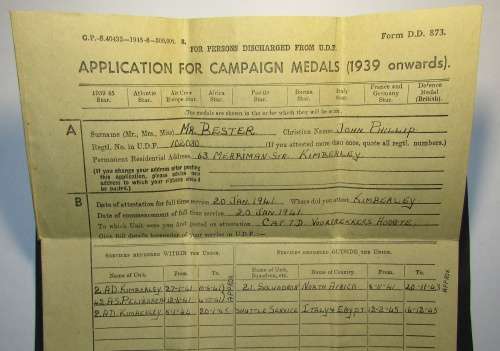 G.P.-S.40433—1945-6—300,000. S.
Form D.D. 873.
FOR PERSONS DISCHARGED FROM U.D.F.
APPLICATION FOR CAMPAIGN MEDALS (1939 onwards).
1939-45 Star. Atlantic Star. Air Crew Europe Star. Africa Star. Pacific Star. Burma Star. Italy Star. France and Germany Star. Defence Medal (British).
The medals are shown in the order which they will be worn.
A
Surname (Mr., Mrs., Miss) MR. BESTER Christian Name JOHN PHILLIP
Regtl. No. in U.D.F. 102030 (If you attested more than once, quote all regtl. numbers.)
Permanent Residential Address 63 MERRIMAN STR. KIMBERLEY
(If you change your address after posting
this application, please advise new
address to which
B
Date of attestation for full time service 20 JAN. 1941 Where did you attest KIMBERLEY
Date of commencement of full time service 20 JAN. 1941
To which Unit were you first posted to CAT. T.D. VOORTREKKERS HOOGTE
Give full details hereunder of your service in U.D.F.—
SERVICES RENDERED WITHIN THE UNION. SERVICES RENDERED OUTSIDE THE UNION.
Name of Unit. From. To. Name of Unit, Squadron, etc. Name of Country. From. To.
2 A.D. KIMBERLEY 21. SQUADRON NORTH AFRICA 20-11-43
42 A.S.
2 A.D. KIMBERLEY 20-1-45 SHUTTLE SERVICE ITALY & EGYPT 12-2-45 16-12-45
APPROX
APPROX